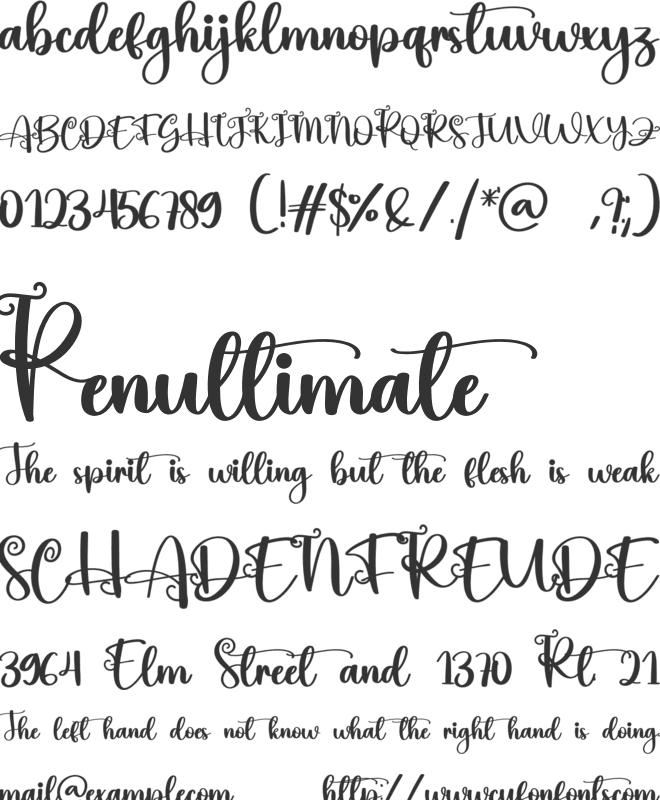 abcdefghijklmnopqrstuvwxyz
ABCDEFGHIJKLMNOPQRSTUVWXYZ
0123456789 (!#$%&/./*@ ,?;)
Penultimate
The spirit is willing but the flesh is weak
SCHADENFREUDE
3964 Elm Street and 1370 Rt. 21
The left hand does not know what the right hand is doing.
mail@example.com http://www.cufonfonts.com